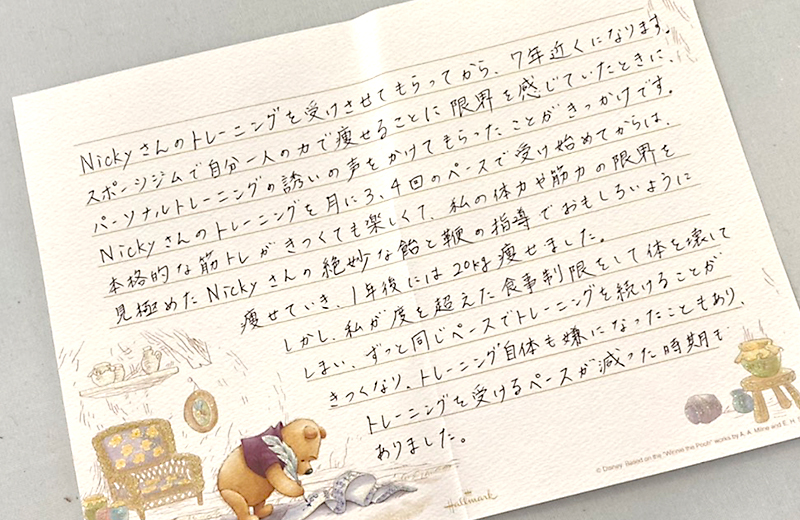 Nickyさんのトレーニングを受けさせてもらってから、7年近くになります。
スポーツジムで自分一人の力で痩せることに限界を感じていたときに、
パーソナルトレーニングの誘いの声をかけてもらったことがきっかけです。
Nickyさんのトレーニングを月に3、4回のペースで受け始めてからは、
本格的な筋トレがきつくても楽しくて、私の体力や筋力の限界を
見極めたNickyさんの絶妙な飴と鞭の指導でおもしろいように
痩せていき、1年後には20kg痩せました。
しかし、私が度を超えた食事制限をして体を壊して
しまい、ずっと同じペースでトレーニングを続けることが
きつくなり、トレーニング自体も嫌になったこともあり、
トレーニングを受けるペースが減った時期も
ありました。
© Disney Based on the "Winnie the Pooh" works by A. A. Milne and E. H.
Hallmark